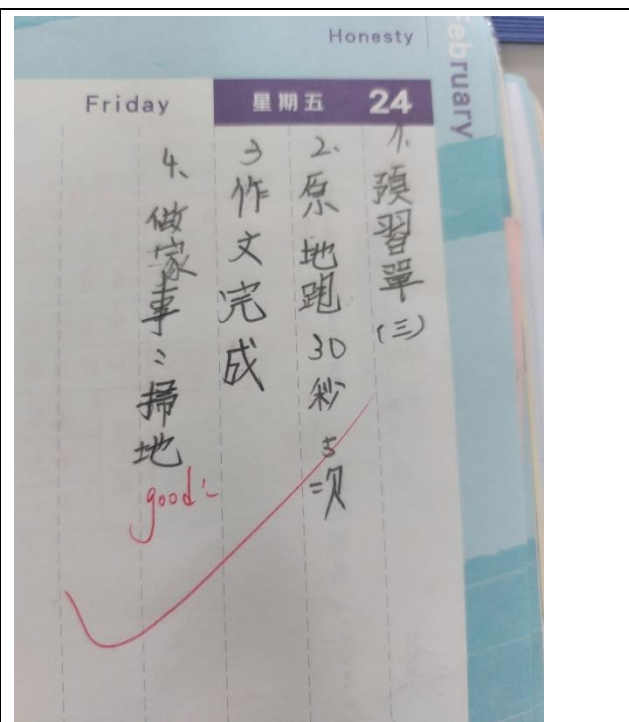 Honesty
February
Friday 星期五 24
1、預習單(三)
2、原地跑30秒5次
3作文完成
4、做家事:掃地
good